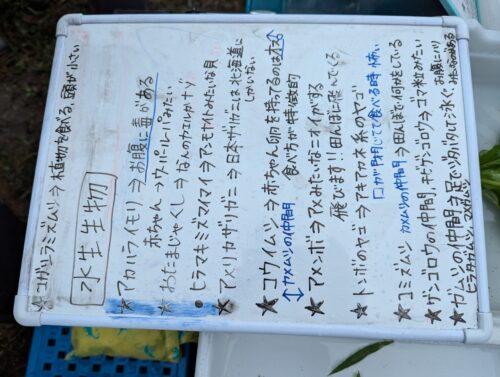 コガタノミズムシ→植物を食べる、頭が小さい
水生生物
★アカハライモリ→お腹に毒がある
赤ちゃん→ウーパールーパーみたい
★おたまじゃくし→なんのカエルかナ?
●ヒラマキミズマイマイ→アンモナイトみたいな貝
★アメリカザリガニ→日本ザリガニは北海道にしかいない
★コウイムシ→赤ちゃん(卵)を持ってるのはオス
↑カメムシの仲間 食べ方が特徴的
★アメンボ→アメみたいなニオイがする
飛びます!!田んぼに飛んでくる
★トンボのヤゴ→アキアカネ系のヤゴ
口が閉じてて食べる時怖い
★コミズムシ カメムシの仲間→田んぼで何か食している
★ゲンゴロウの仲間 チビゲンゴロウ→ゴマ粒みたい
★ガムシの仲間→足でジタバタ泳ぐ お腹にハリ
ヒメガムシ、マメガムシ